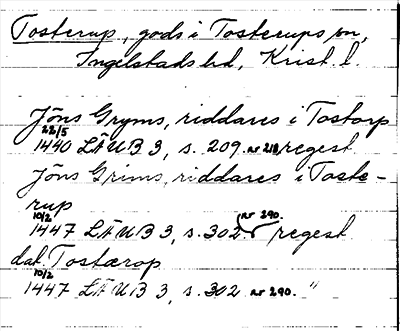 Tosterup, gods i Tosterups sn,
Ingelstads hd, Krist. l.
Jöns Gryms, riddares i Tostorp
22/5
1440 LÄUB 3, s. 209. nr 218 regest.
Jöns Grims, riddares i Toste-
rup
10/2 nr 290.
1447 LÄUB 3, s. 302. regest
dat. Tostærop
10/2
1447 LÄUB 3, s. 302 nr 290. "